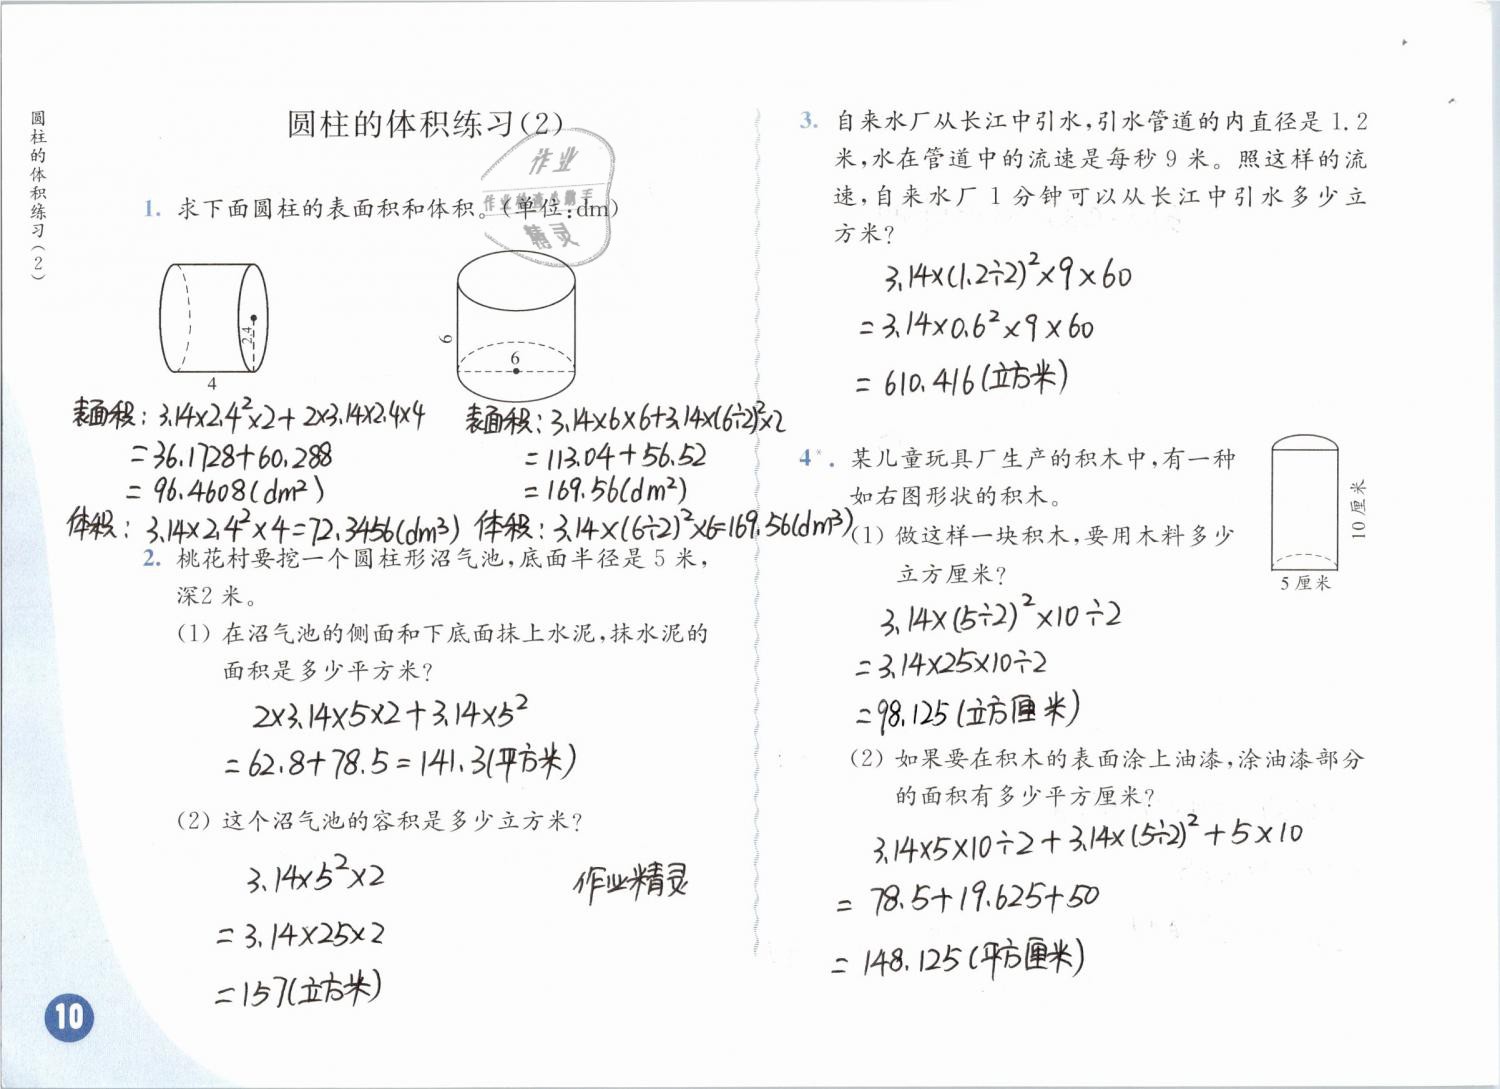 圆柱的体积练习(2)
圆柱的体积练习(2)
作业
作业快速小助手
精灵
1. 求下面圆柱的表面积和体积。(单位:dm)
2.4
4
6
6
表面积: 3.14×2.4²×2+2×3.14×2.4×4
=36.1728+60.288
=96.4608(dm²)
体积: 3.14×2.4²×4=72.3456(dm³)
表面积: 3.14×6×6+3.14×(6÷2)²×2
=113.04+56.52
=169.56(dm²)
体积: 3.14×(6÷2)²×6=169.56(dm³)
2. 桃花村要挖一个圆柱形沼气池,底面半径是 5 米,
深2 米。
(1) 在沼气池的侧面和下底面抹上水泥,抹水泥的
面积是多少平方米?
2×3.14×5×2+3.14×5²
=62.8+78.5=141.3(平方米)
(2) 这个沼气池的容积是多少立方米?
3.14×5²×2
=3.14×25×2
=157(立方米)
作业精灵
10
3. 自来水厂从长江中引水,引水管道的内直径是 1.2
米,水在管道中的流速是每秒 9 米。照这样的流
速,自来水厂 1 分钟可以从长江中引水多少立
方米?
3.14×(1.2÷2)²×9×60
=3.14×0.6²×9×60
=610.416(立方米)
4*. 某儿童玩具厂生产的积木中,有一种
如右图形状的积木。
10 厘米
5 厘米
(1) 做这样一块积木,要用木料多少
立方厘米?
3.14×(5÷2)²×10÷2
=3.14×25×10÷2
=98.125(立方厘米)
(2) 如果要在积木的表面涂上油漆,涂油漆部分
的面积有多少平方厘米?
3.14×5×10÷2+3.14×(5÷2)²+5×10
=78.5+19.625+50
=148.125(平方厘米)